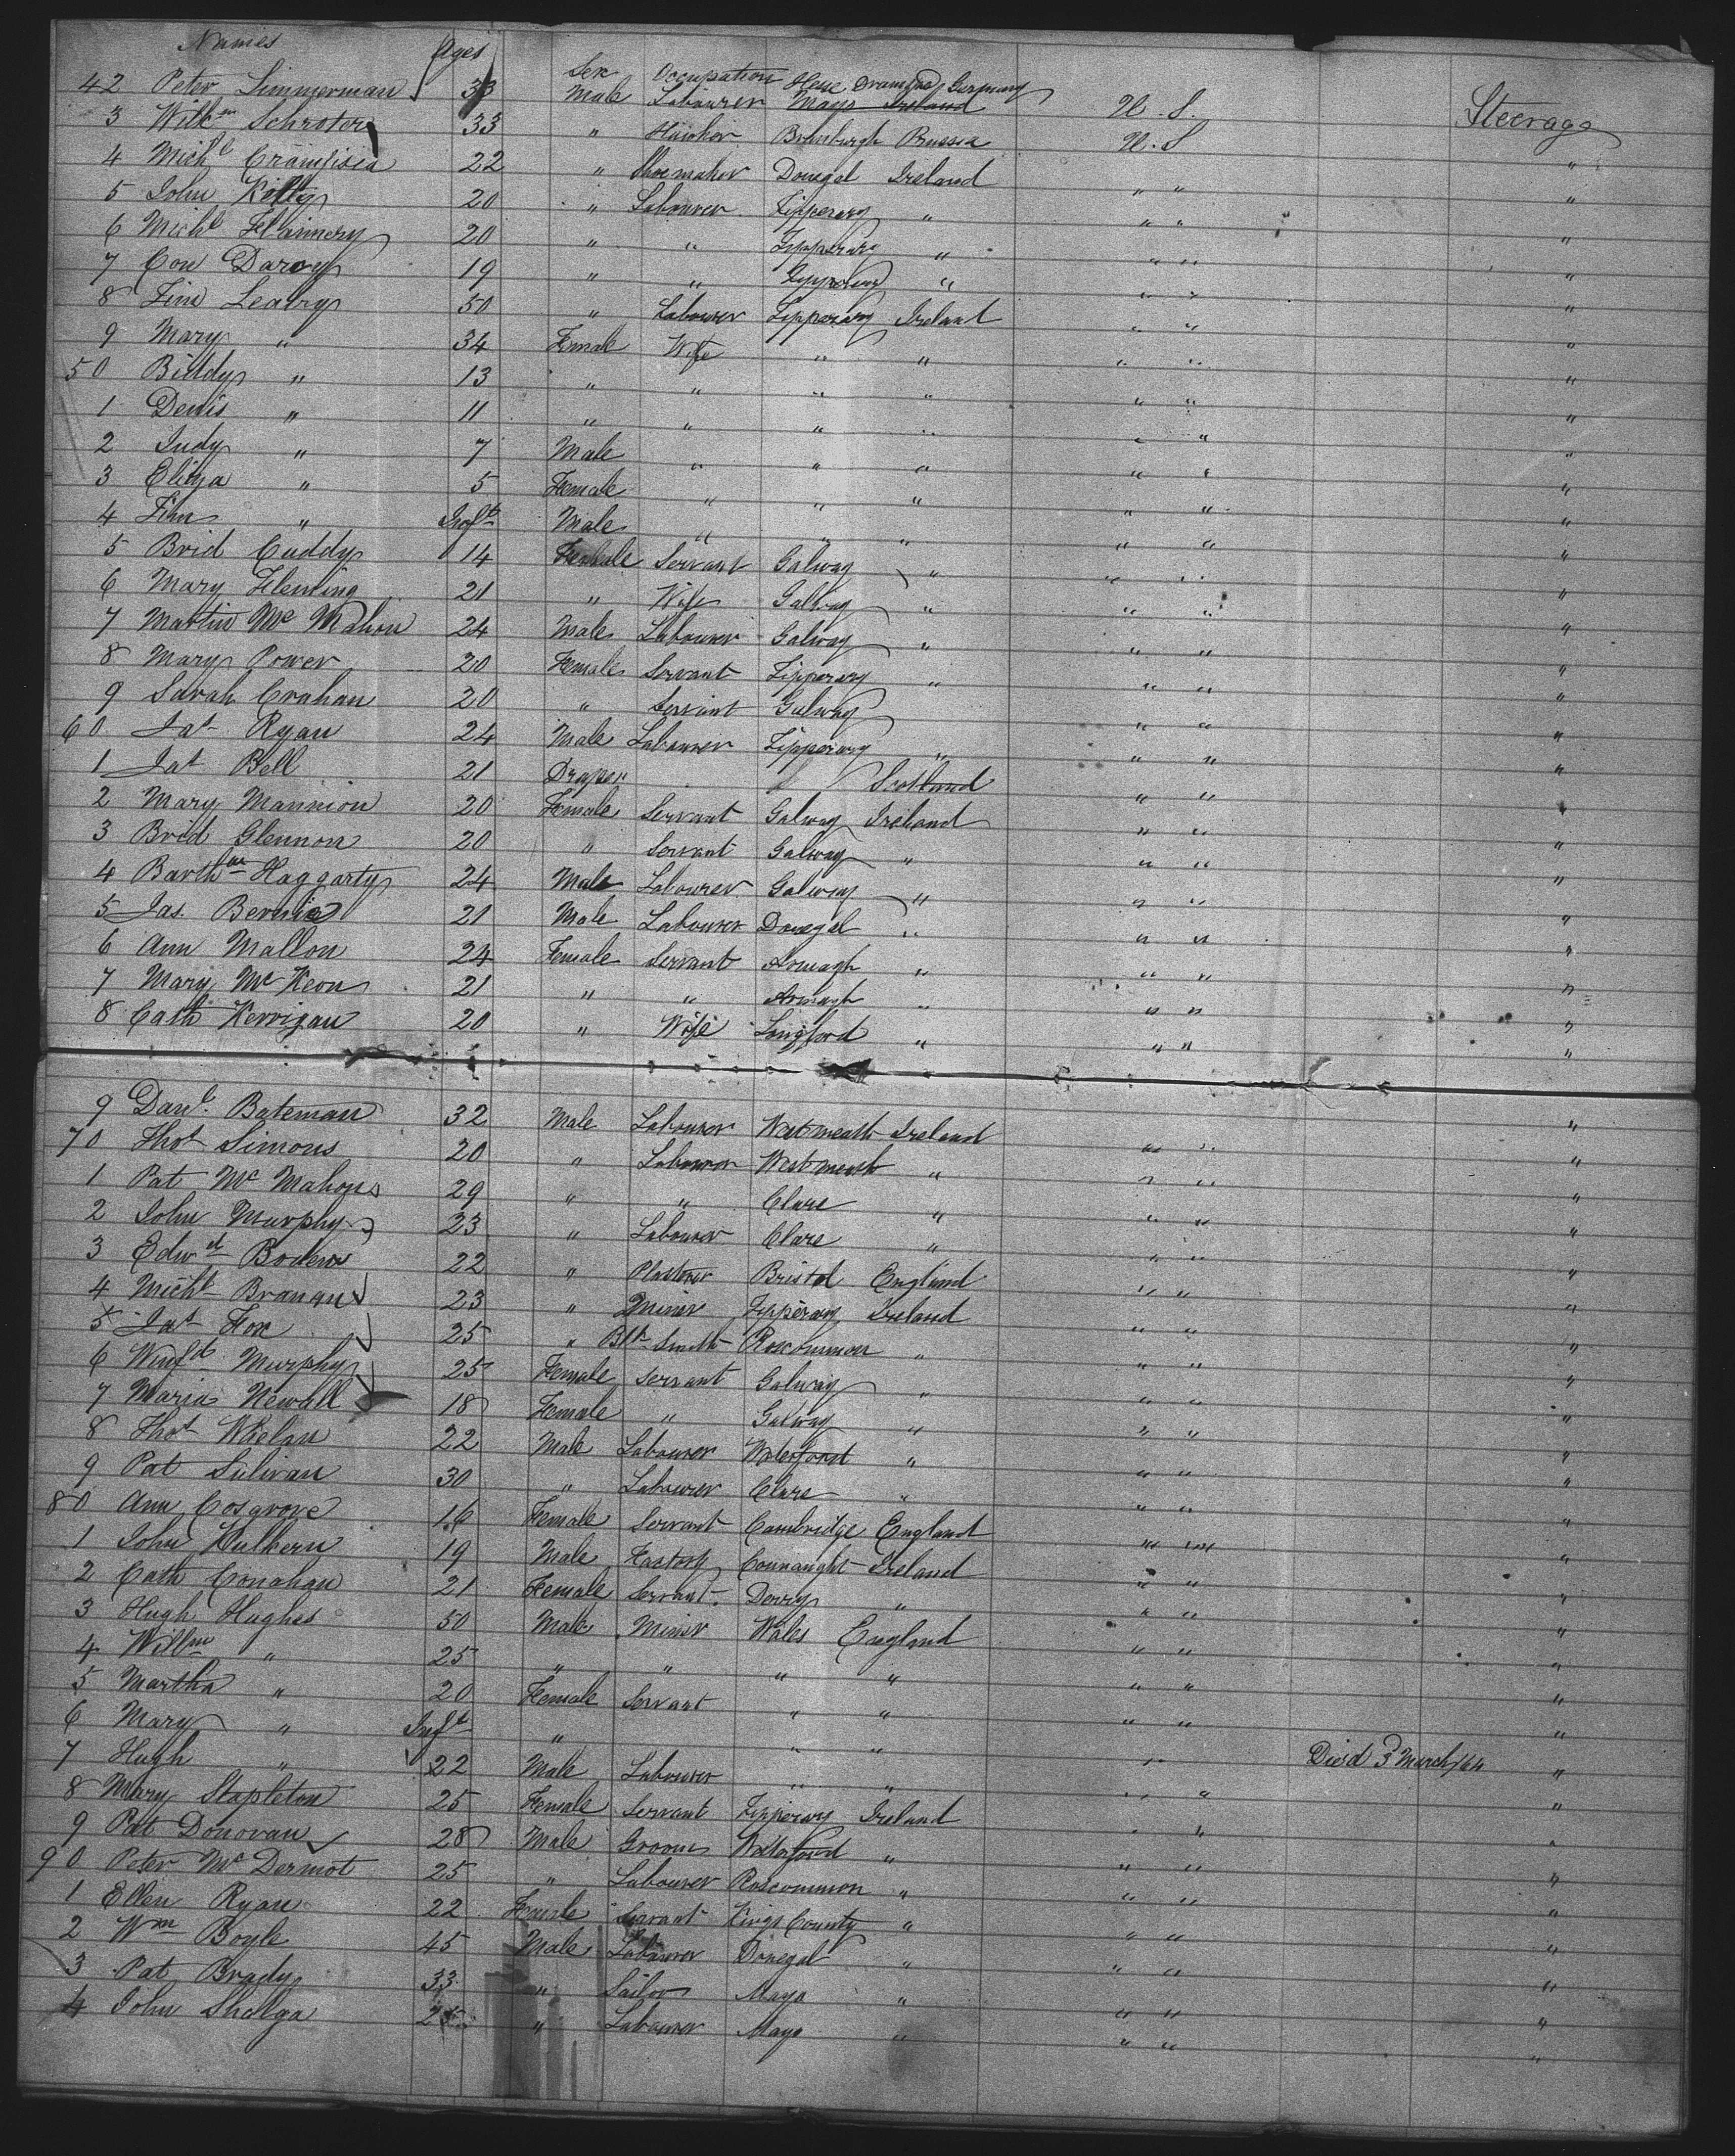 Names Ages Sex Occupation
42 Peter Simmerman 33 Male Labourer Mayo Ireland Hesse Germany U.S. Steerage
3 Willm Schroter 33 " Brandenburgh Prussia U.S "
4 Michl 22 " Shoemaker Donegal Ireland " " "
5 John Kilty 20 " Labourer Tipperary " " " "
6 Michl Flannery 20 " " Tipperary " " " "
7 Con Darcy 19 " " Tipperary " " " "
8 Tim Leary 50 " Labourer Tipperary Ireland " " "
9 Mary " 34 Female Wife " " " " "
50 Biddy " 13 " " " " " " "
1 Denis " 11 " " " " " " "
2 Judy " 7 Male " " " " " "
3 Eliza " 5 Female " " " " " "
4 Tim " Inft Male " " " " " "
5 Brid Cuddy 14 Female Servant Galway " " " "
6 Mary Fleming 21 " Wife Galway " " " "
7 Martin Mc Mahon 24 Male Labourer Galway " " " "
8 Mary Power 20 Female Servant Tipperary " " " "
9 Sarah Crahan 20 " Servant Galway " " "
60 Jas Ryan 24 Male Labourer Tipperary " " " "
1 Jas Bell 21 Draper Scotland " " "
2 Mary Mannion 20 Female Servant Galway Ireland " " "
3 Brid Glennon 20 " Servant Galway " " " "
4 Barthw Haggarty 24 Male Labourer Galway " " " "
5 Jas. 21 Male Labourer Donegal " " " "
6 Ann Mallon 24 Female Servant Armagh " " " "
7 Mary Mc Keon 21 " " Armagh " " " "
8 Cath Kerrigan 20 " Wife Longford " " " "
9 Danl. Bateman 32 Male Labourer Westmeath Ireland " " "
70 Thos Simons 20 " Labourer Westmeath " " " "
1 Pat Mc Mahon 29 " " Clare " " " "
2 John Murphy 23 " Labourer Clare " " " "
3 Edwd Boden 22 " Plasterer Bristol England " " "
4 Michl Branan 23 " Miner Tipperary Ireland " " "
5 Jas Fox 25 " Blk Smith Roscommon " " " "
6 Winfd Murphy 25 Female Servant Galway " " " "
7 Maria Newall 18 Female " Galway " " " "
8 Thos Whelan 22 Male Labourer Waterford " " " "
9 Pat Sulivan 30 " Labourer Clare " " " "
80 Ann Cosgrove 16 Female Servant Cambridge England " " "
1 John Hulhern 19 Male Factory Connaught Ireland " " "
2 Cath Conahan 21 Female Servant Derry " " " "
3 Hugh Hughes 50 Male Miner Wales England " " "
4 Willm " 25 " " " " " " "
5 Martha " 20 Female Servant " " " " "
6 Mary " Inft " " " " Died 3 March/64 "
7 Hugh " 22 Male Labourer " " " " "
8 Mary Stapleton 25 Female Servant Tipperary Ireland " " "
9 Pat Donovan 28 Male Groom Waterford " " " "
90 Peter Mc Dermot 25 " Labourer Roscommon " " " "
1 Ellen Ryan 22 Female Servant Kings County " " " "
2 Wm Boyle 45 Male Labourer Donegal " " " "
3 Pat Brady 33 " Sailor Mayo " " " "
4 John Shalga 25 " Labourer Mayo " " " "